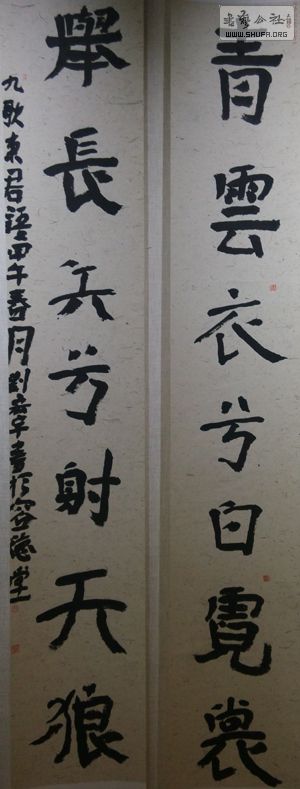 書藝公社
WWW.SHUFA.ORG
青雲衣兮白霓裳
舉長矢兮射天狼
九歌東君語甲午春月劉書於堂